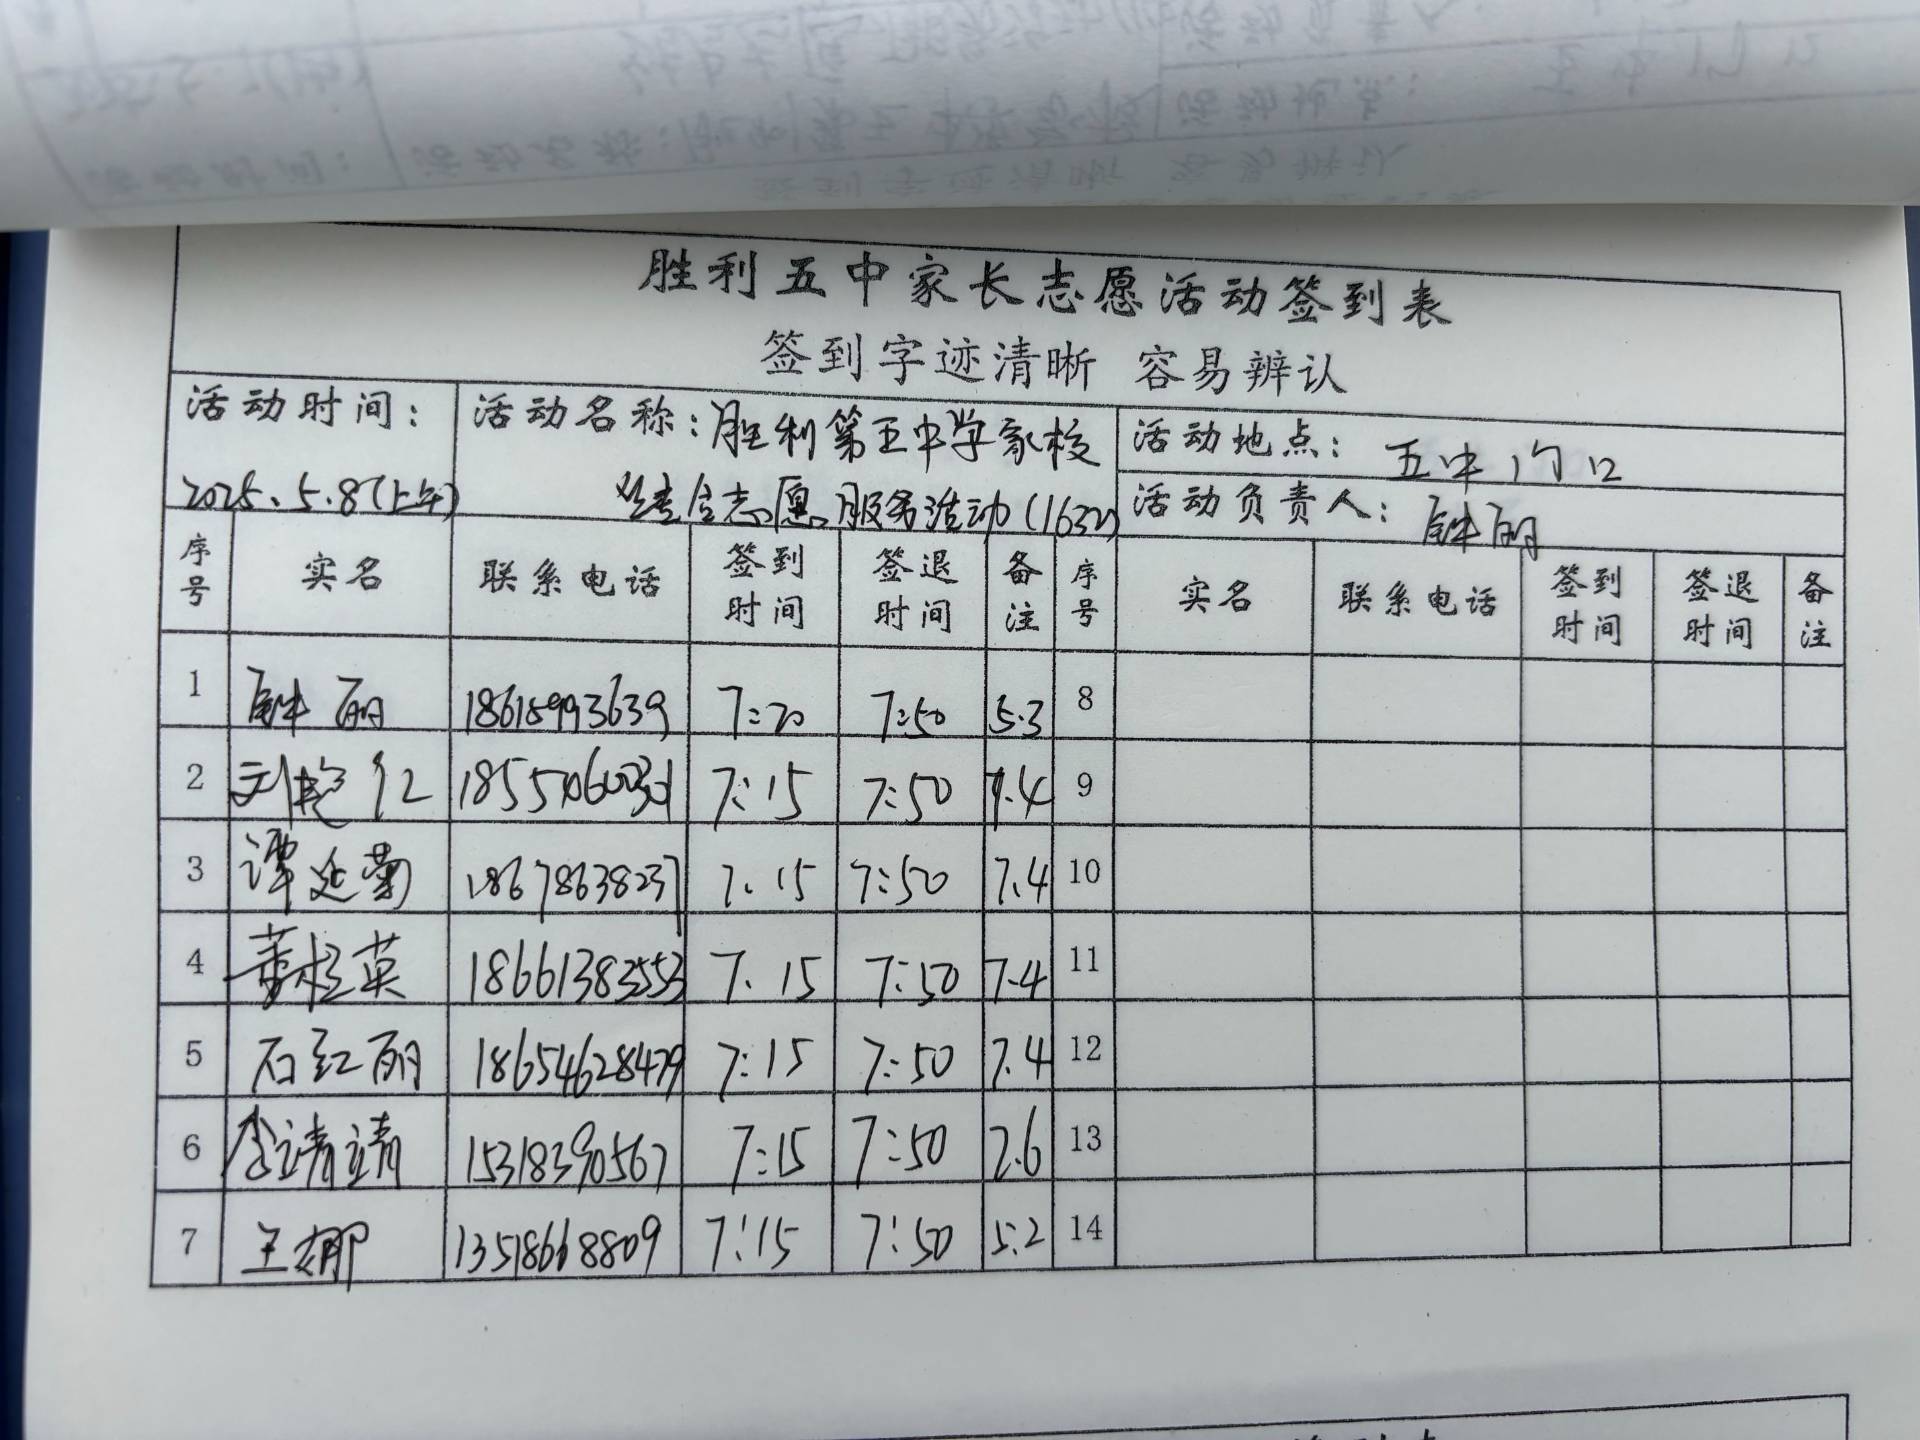 胜利五中家长志愿活动签到表
签到字迹清晰 容易辨认
活动时间： 活动名称：胜利第五中学家校 活动地点：五中门口
2025.5.8(上午) 志愿服务活动(1632) 活动负责人：丽
序号 实名 联系电话 签到时间 签退时间 备注 序号 实名 联系电话 签到时间 签退时间 备注
1 丽 18615993639 7:20 7:50 5.3 8
2 刘艳红 7:15 7:50 7.4 9
3 谭延菊 18678638237 7.15 7:50 7.4 10
4 董桂英 18661383553 7.15 7:50 7.4 11
5 石红丽 18654628479 7:15 7:50 7.4 12
6 李靖靖 15318390567 7:15 7:50 7.6 13
7 王娜 13518668809 7:15 7:50 5.2 14